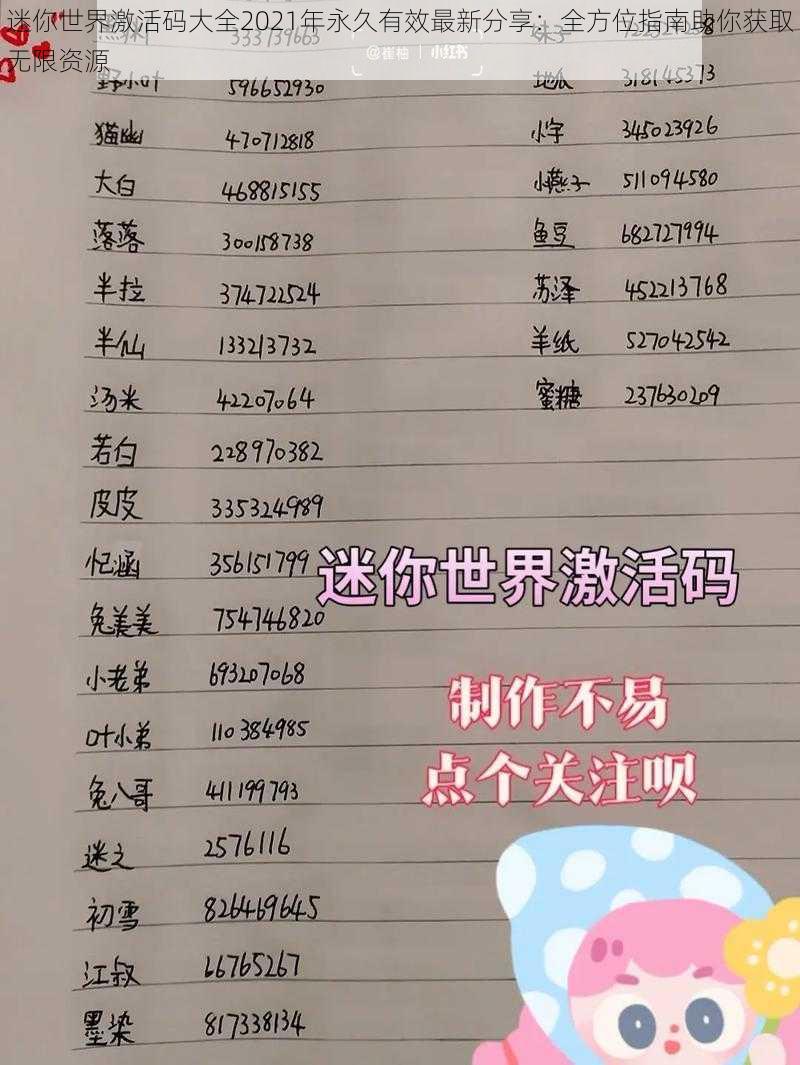 迷你世界激活码大全2021年永久有效最新分享：全方位指南助你获取
无限资源
@崔柚 | 小红书
野小叶 596652930
猫幽 470712818
大白 468815155
落落 300158738
半拉 374722524
半仙 133213732
汤米 42207064
若白 228970382
皮皮 335324989
忆涵 356151799
兔美美 754746820
小老弟 693207068
叶小弟 110384985
兔八哥 411199793
迷之 2576116
初雪 826469645
江叔 66765267
墨染 817338134
地瓜 318145373
小字 345023926
小燕子 511094580
鱼豆 682727994
苏泽 452213768
羊纸 527042542
蜜糖 237630209
迷你世界激活码
制作不易
点个关注呗